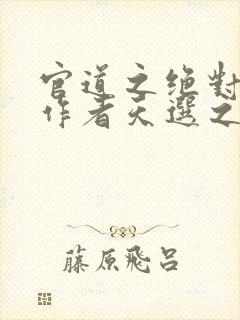 官道之绝對
作者天選之
藤原飛呂